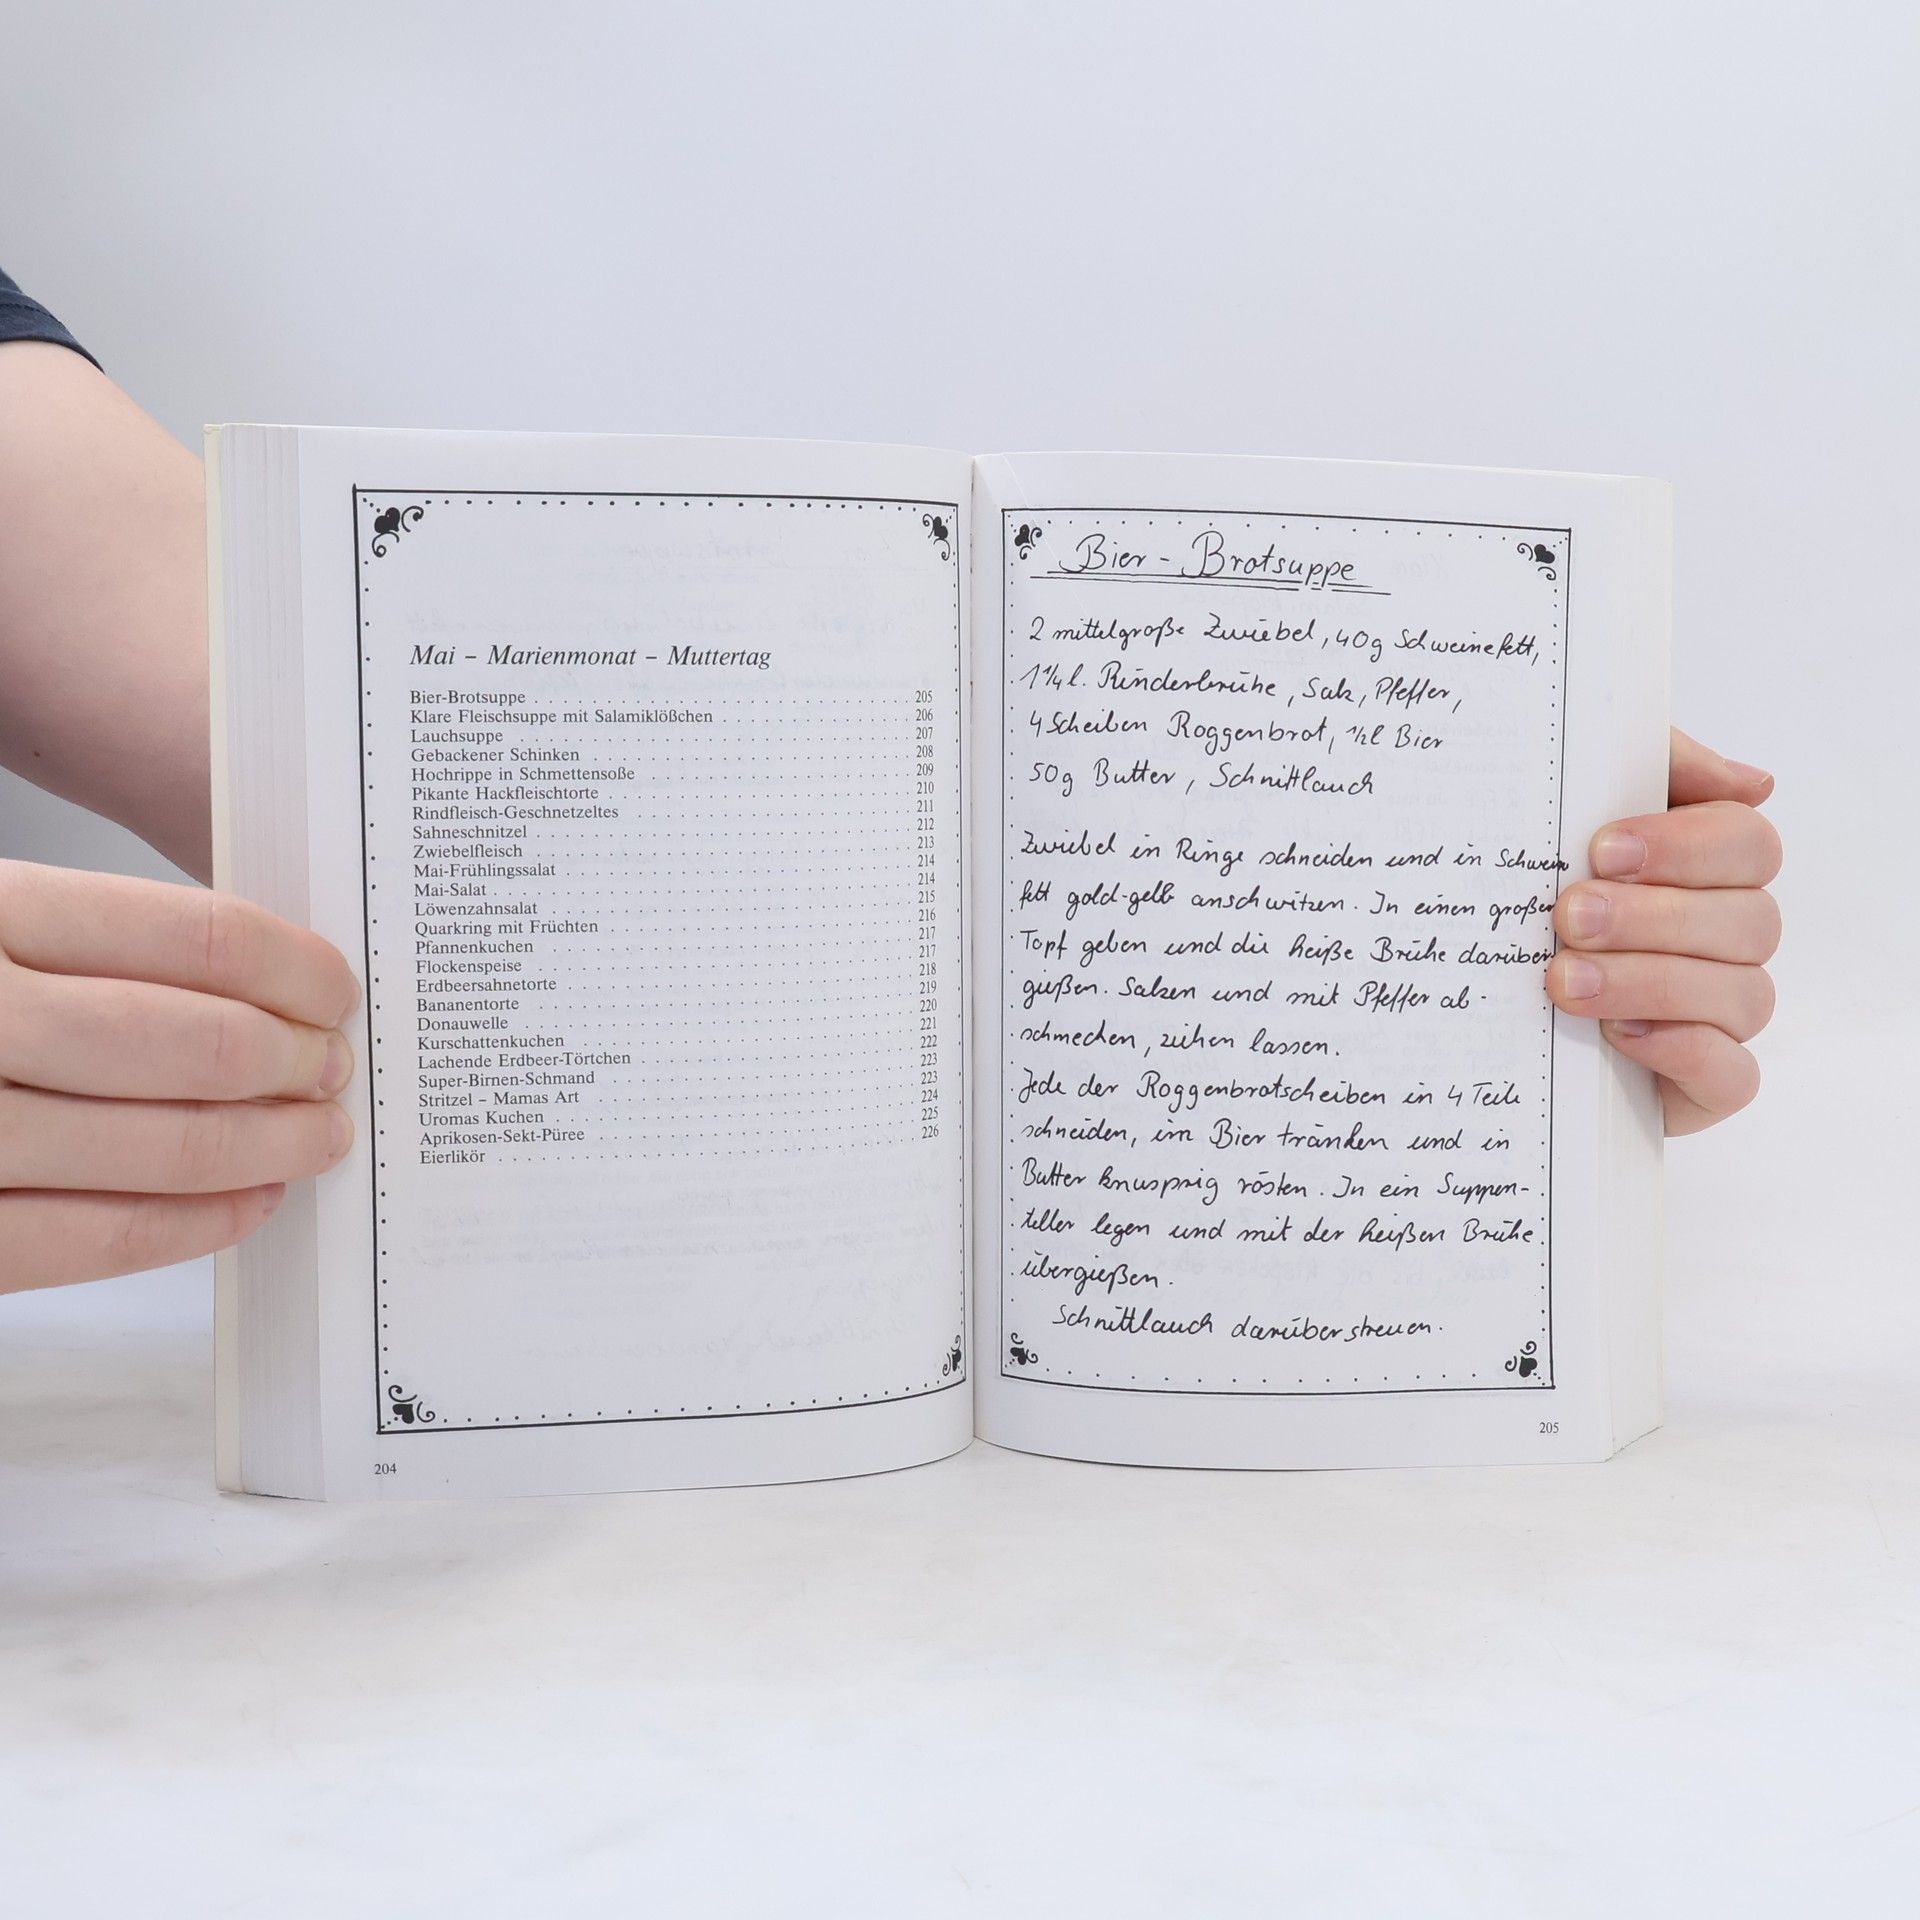 Mai – Marienmonat – Muttertag
Bier-Brotsuppe . . . . . . . . . . . . . . . . . . . . 205
Klare Fleischsuppe mit Salamiklößchen . . . . . . . . . . 206
Lauchsuppe . . . . . . . . . . . . . . . . . . . . 207
Gebackener Schinken . . . . . . . . . . . . . . . . . 208
Hochrippe in Schmettensoße . . . . . . . . . . . . . . 209
Pikante Hackfleischtorte . . . . . . . . . . . . . . . . 210
Rindfleisch-Geschnetzeltes . . . . . . . . . . . . . . . 211
Sahneschnitzel . . . . . . . . . . . . . . . . . . . . 212
Zwiebelfleisch . . . . . . . . . . . . . . . . . . . . 213
Mai-Frühlingssalat . . . . . . . . . . . . . . . . . . 214
Mai-Salat . . . . . . . . . . . . . . . . . . . . . . 214
Löwenzahnsalat . . . . . . . . . . . . . . . . . . . 215
Quarkring mit Früchten . . . . . . . . . . . . . . . . 216
Pfannenkuchen . . . . . . . . . . . . . . . . . . . 217
Flockenspeise . . . . . . . . . . . . . . . . . . . . 217
Erdbeersahnetorte . . . . . . . . . . . . . . . . . . 218
Bananentorte . . . . . . . . . . . . . . . . . . . . 219
Donauwelle . . . . . . . . . . . . . . . . . . . . 220
Kurschattenkuchen . . . . . . . . . . . . . . . . . 221
Lachende Erdbeer-Törtchen . . . . . . . . . . . . . . 222
Super-Birnen-Schmand . . . . . . . . . . . . . . . . 223
Stritzel – Mamas Art . . . . . . . . . . . . . . . . . 223
Uromas Kuchen . . . . . . . . . . . . . . . . . . . 224
Aprikosen-Sekt-Püree . . . . . . . . . . . . . . . . 225
Eierlikör . . . . . . . . . . . . . . . . . . . . . . 226
204
Bier - Brotsuppe
2 mittelgroße Zwiebel, 40g Schweinefett,
1 1/4 l. Rinderbrühe, Salz, Pfeffer,
4 Scheiben Roggenbrot, 1/2 l Bier
50g Butter, Schnittlauch
Zwiebel in Ringe schneiden und in Schweine
fett gold-gelb anschwitzen. In einen großen
Topf geben und die heiße Brühe darüber
gießen. Salzen und mit Pfeffer ab-
schmecken, ziehen lassen.
Jede der Roggenbrotscheiben in 4 Teile
schneiden, im Bier tränken und in
Butter knusprig rösten. In ein Suppen-
teller legen und mit der heißen Brühe
übergießen.
Schnittlauch darüber streuen.
205